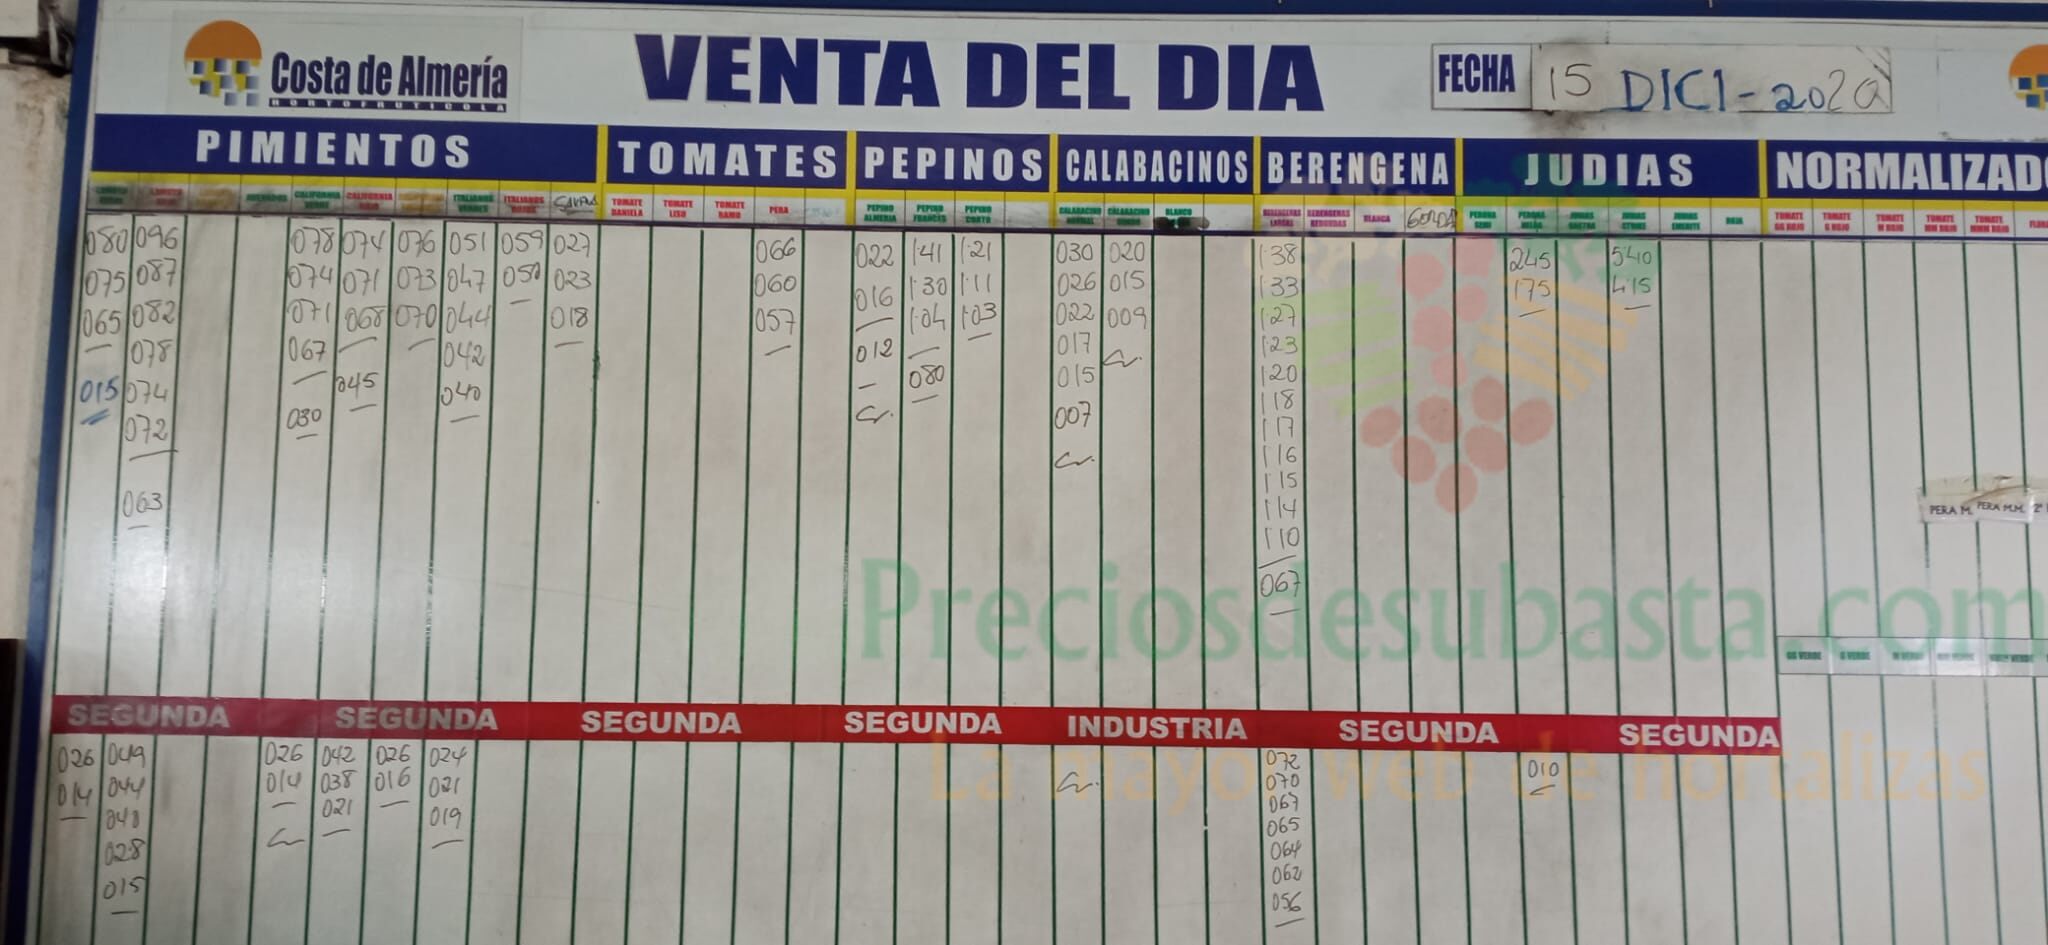 Costa de Almería
HORTOFRUTICOLA
VENTA DEL DIA
FECHA 15 DICI-2020
PIMIENTOS TOMATES PEPINOS CALABACINOS BERENGENA JUDIAS NORMALIZADO
CALIFORNIA CALIFORNIA ITALIANOS ITALIANOS TOMATE DANIELA TOMATE LISO TOMATE RAMO PERA PEPINO ALMERIA PEPINO FRANCES PEPINO CORTO BLANCO BERENGENAS LARGAS BERENGENAS REDONDAS BLANCA GORDA PERONA SEMI PERONA JUDIAS JUDIAS STRIKE JUDIAS EMERITE ROJA TOMATE GG ROJO TOMATE G ROJO TOMATE M ROJO TOMATE MM ROJO TOMATE MMM ROJO
080 096 078 074 076 051 059 027 066 022 1'41 1'21 030 020 1'38 245 540
075 087 074 071 073 047 050 023 060 016 1'30 1'11 026 015 1'33 175 415
065 082 071 068 070 044 018 057 1'04 1'03 022 009 1'27
078 067 042 012 017 1'23
015 074 045 040 080 015 1'20
072 030 007 118
117
116
063 115
114
110
067
PERA M. PERA M.M. 2ª
Preciosdesubasta.com
GG VERDE G VERDE M VERDE
SEGUNDA SEGUNDA SEGUNDA SEGUNDA INDUSTRIA SEGUNDA SEGUNDA
La mayor web de hortalizas
026 049 026 042 026 024 072 010
014 044 014 038 016 021 070
040 021 019 067
028 065
015 064
062
056